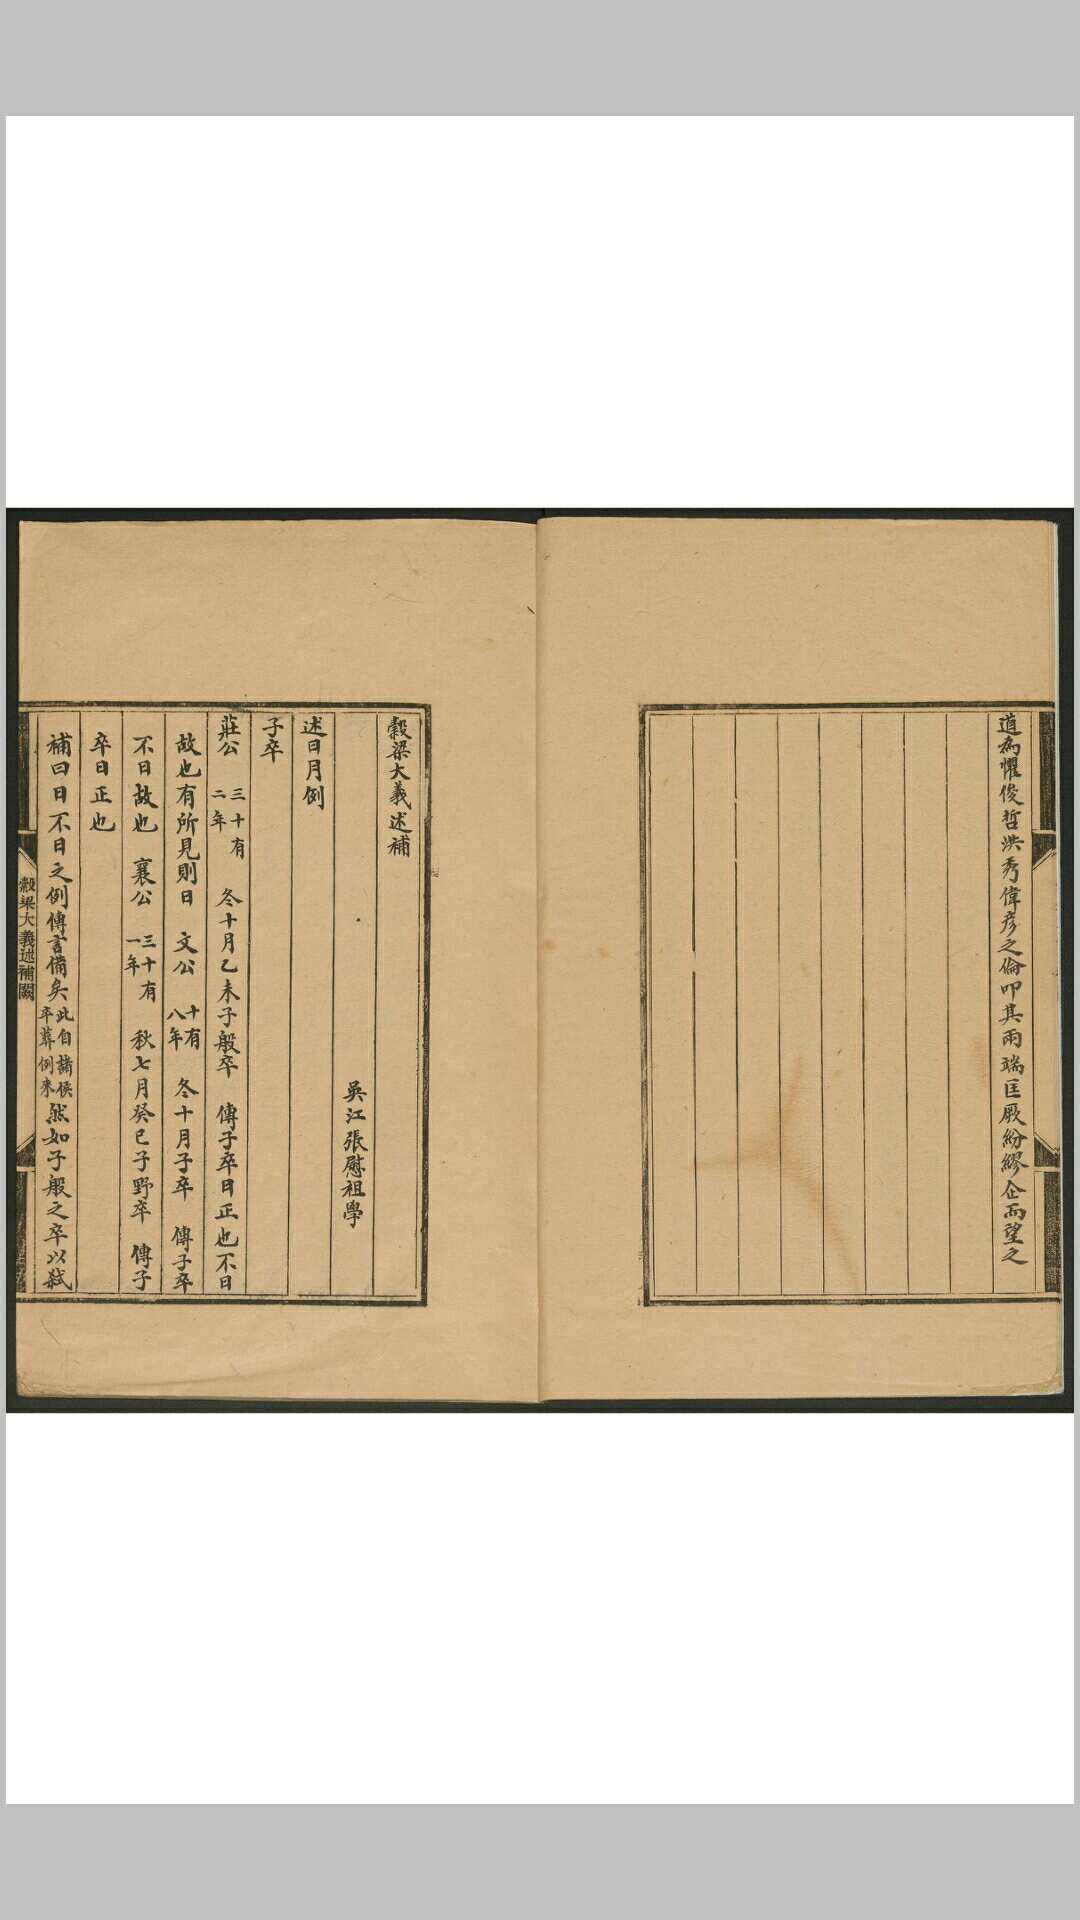 道為懼俊哲洪秀偉彦之倫叩其兩端匡厥紛繆企而望之
穀梁大義述補
吳江張慰祖學
述日月例
子卒
莊公 三十有二年 冬十月乙未子般卒 傳子卒日正也不日
故也有所見則日 文公 十有八年 冬十月子卒 傳子卒
不日故也 襄公 三十有一年 秋七月癸巳子野卒 傳子
卒日正也
補曰日不日之例傳言備矣此自諸侯卒葬例來然如子般之卒以弑
穀梁大義述補闕